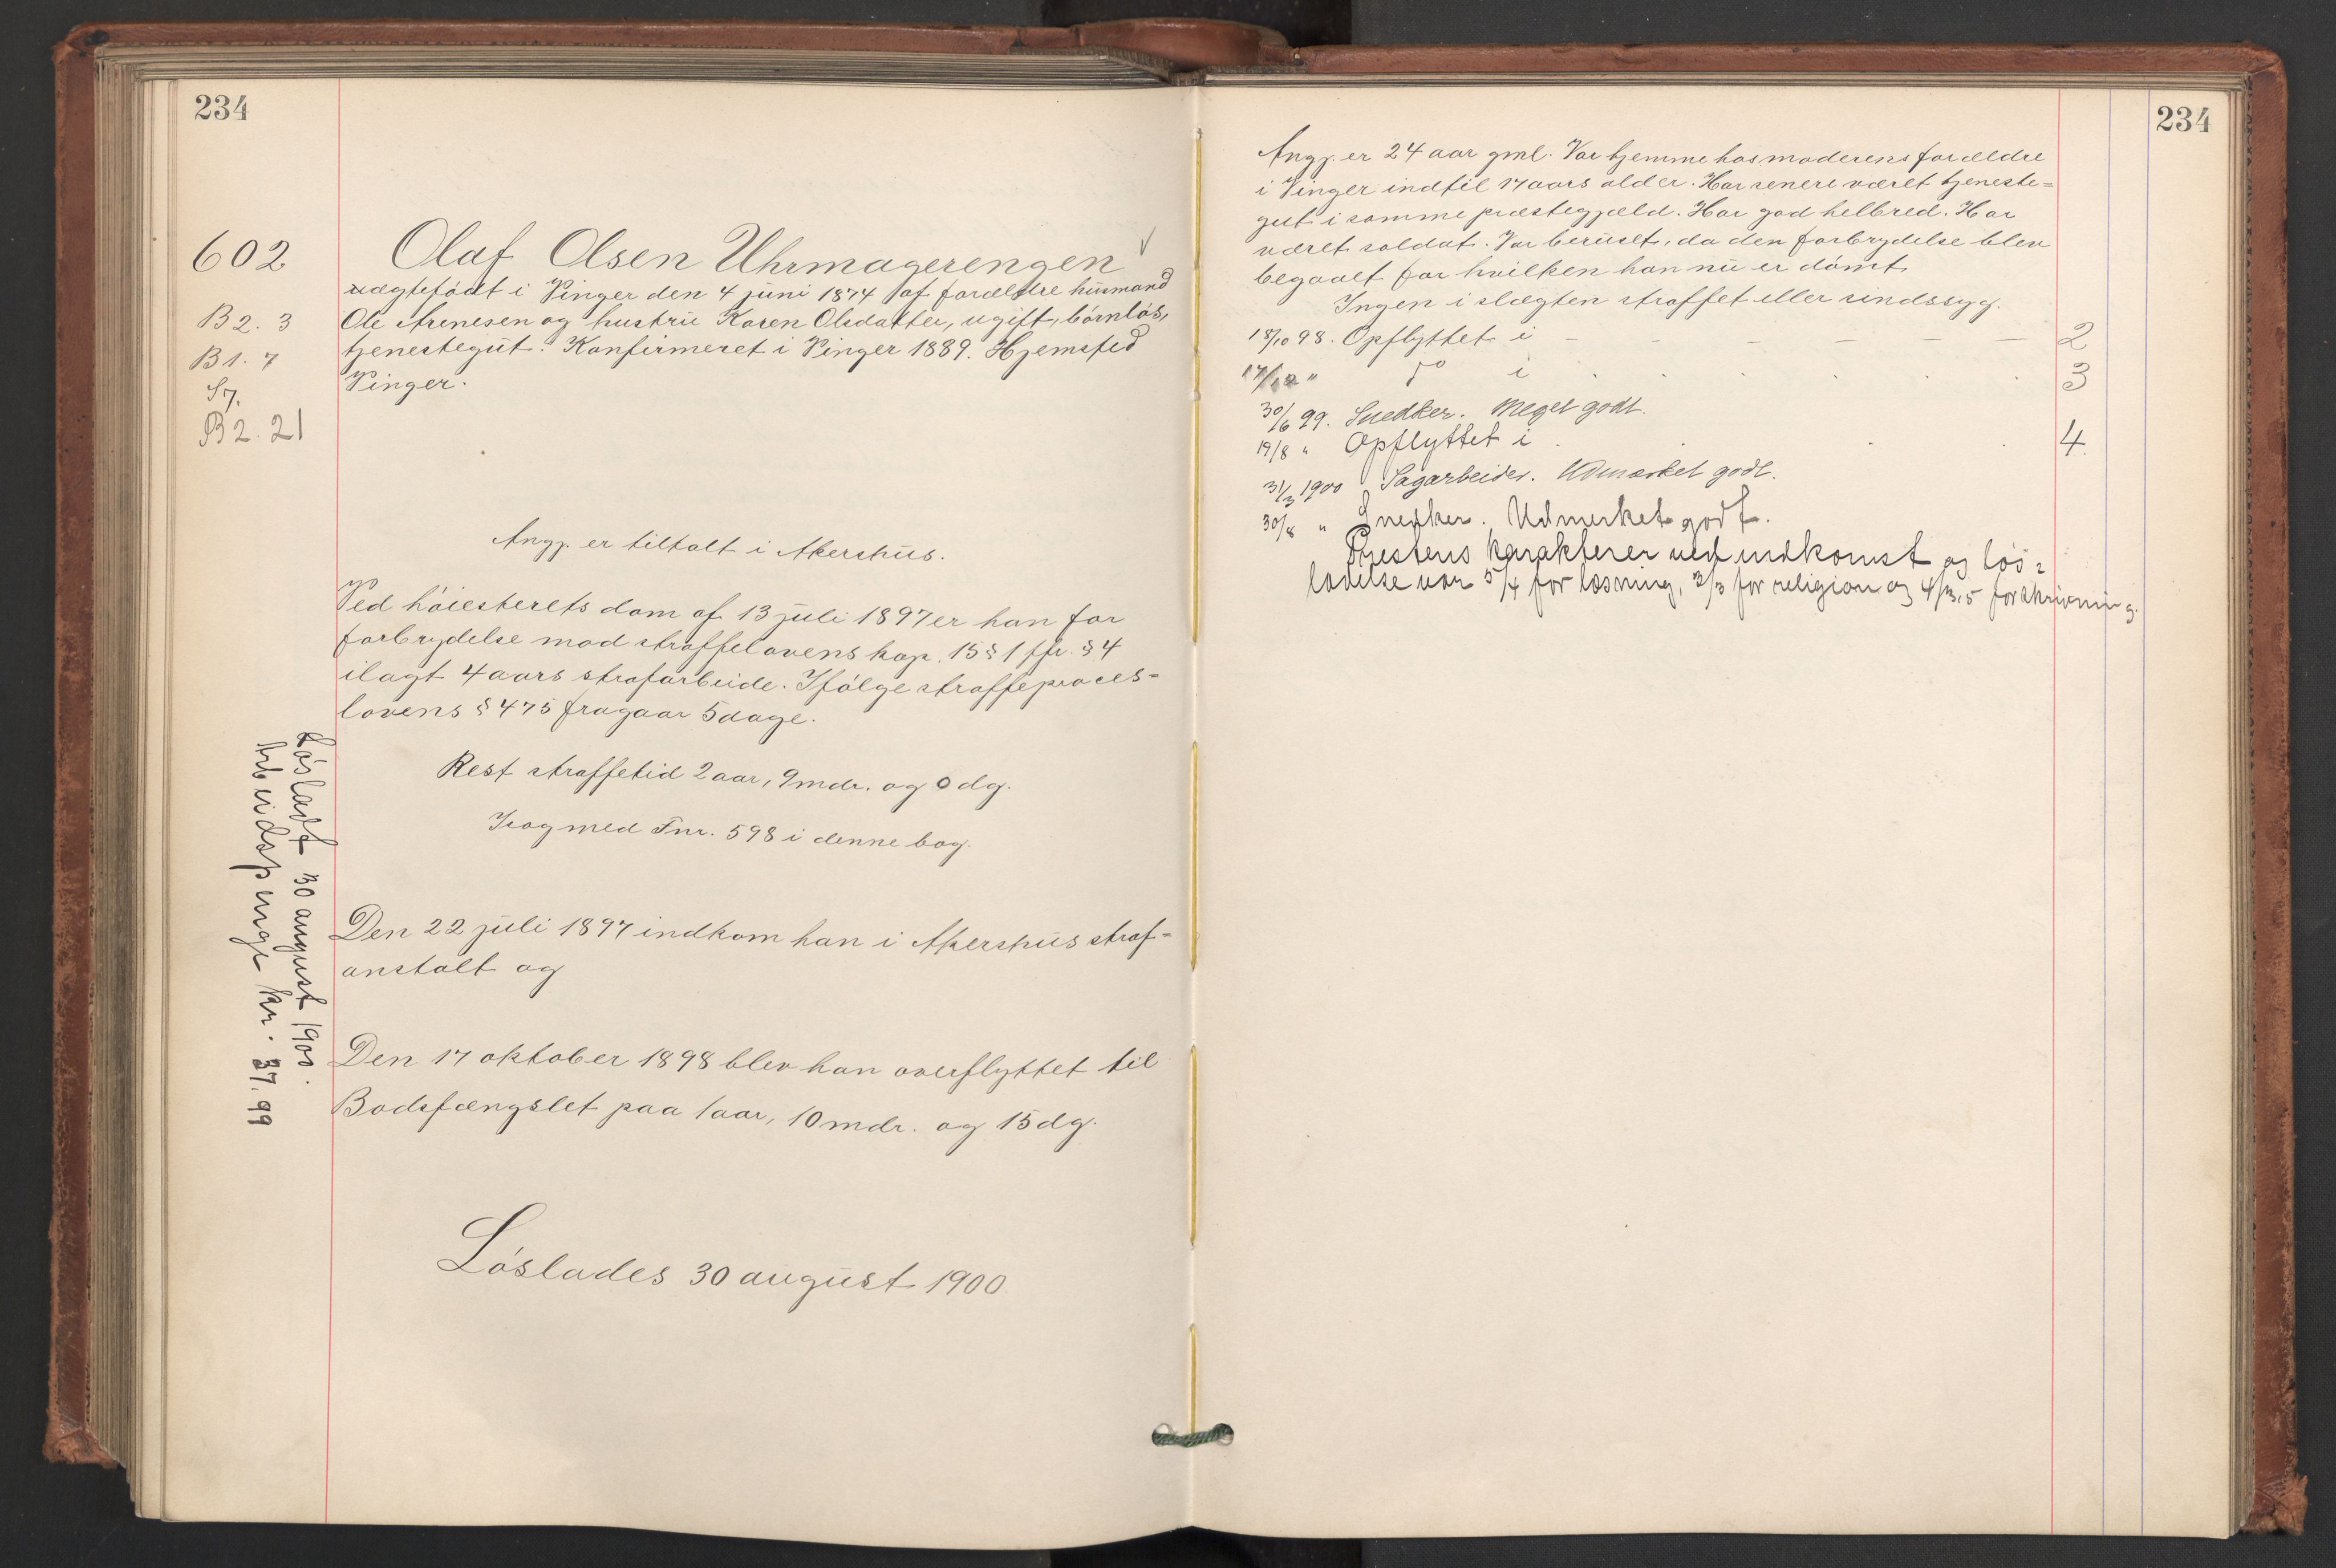 234
602
B 2. 3
B 1. 7
S 7.
B 2. 21
Olaf Olsen Uhrmagerengen
uægtefødt i Vinger den 4 juni 1874 af forældre husmand
Ole Arenesen og hustru Karen Olsdatter, ugift, børnløs,
tjenestegut. Konfirmeret i Vinger 1889. Hjemsted
Vinger.
Angj. er tiltalt i Akershus.
Ved høiesterets dom af 13 juli 1897 er han for
forbrydelse mod straffelovens kap. 15 § 1 jfr. § 4
ilagt 4 aars strafarbeide. Ifølge straffeproces-
lovens § 475 fragaar 5 dage.
Rest straffetid 2 aar, 9 mdr. og 0 dg.
Jvog med Fnr. 598 i denne bog.
Den 22 juli 1897 indkom han i Akershus straf-
anstalt og
Den 17 oktober 1898 blev han overflyttet til
Bodsfængslet paa 1 aar, 10 mdr. og 15 dg.
Løslades 30 august 1900
Løsladt 30 august 1900.
Arbeidspenge kr. 37.99
234
Angj. er 24 aar gml. Var hjemme hos moderens forældre
i Vinger indtil 17 aars alder. Har senere været tjeneste=
gut i samme præstegjæld. Har god helbred. Har
været soldat. Var beruset, da den forbrydelse blev
begaaet for hvilken han nu er dømt.
Ingen i slægten straffet eller sindssyg.
18/10 98. Opflyttet i - - - - - 2
17/12 " do i . . . . . 3
30/6 99. Snedker. Meget godt.
19/8 " Opflyttet i . . . . 4.
31/3 1900 Sagarbeider. Udmærket godt.
30/8 " Snedker. Udmerket godt.
Prestens karakterer ved indkomst og løs=
ladelse var 5/4 for læsning, 3/3 for religion og 4/3,5 for skrivning.